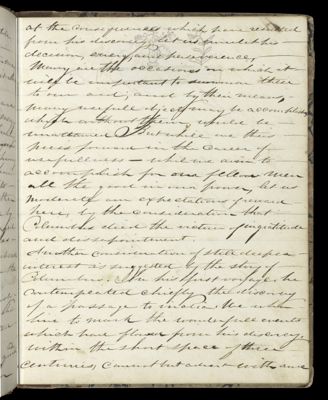 of the consequences which have resulted
from his discoveries
decision, energy and perseverance.
Many are the occasions on which it
will be important to summon these
to our aid, and by their means,
many useful objects may be accomplished
which without them, would be
unattained. But while we thus
press forward in the career of
usefullness — while we aim to
accomplish for our fellow men
all the good in our power, let us
moderate our expectations of reward
here, by the consideration that
Columbus died the victim of ingratitude
and disappointment.
Another consideration of still deeper
interest is suggested by the story of
Columbus. In his first voyage he
contemplated chiefly the discovery
of a passage to India. We who
live to mark the wonderfull events
which have flowed from his discovery
within the short space of three
centuries, cannot but advert with awe